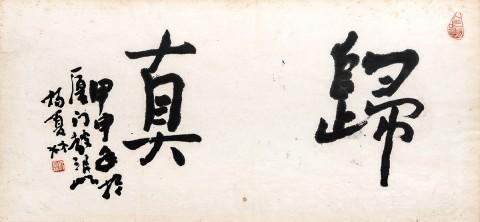 歸真
甲申年於
厦门鼓浪屿
楊夏林